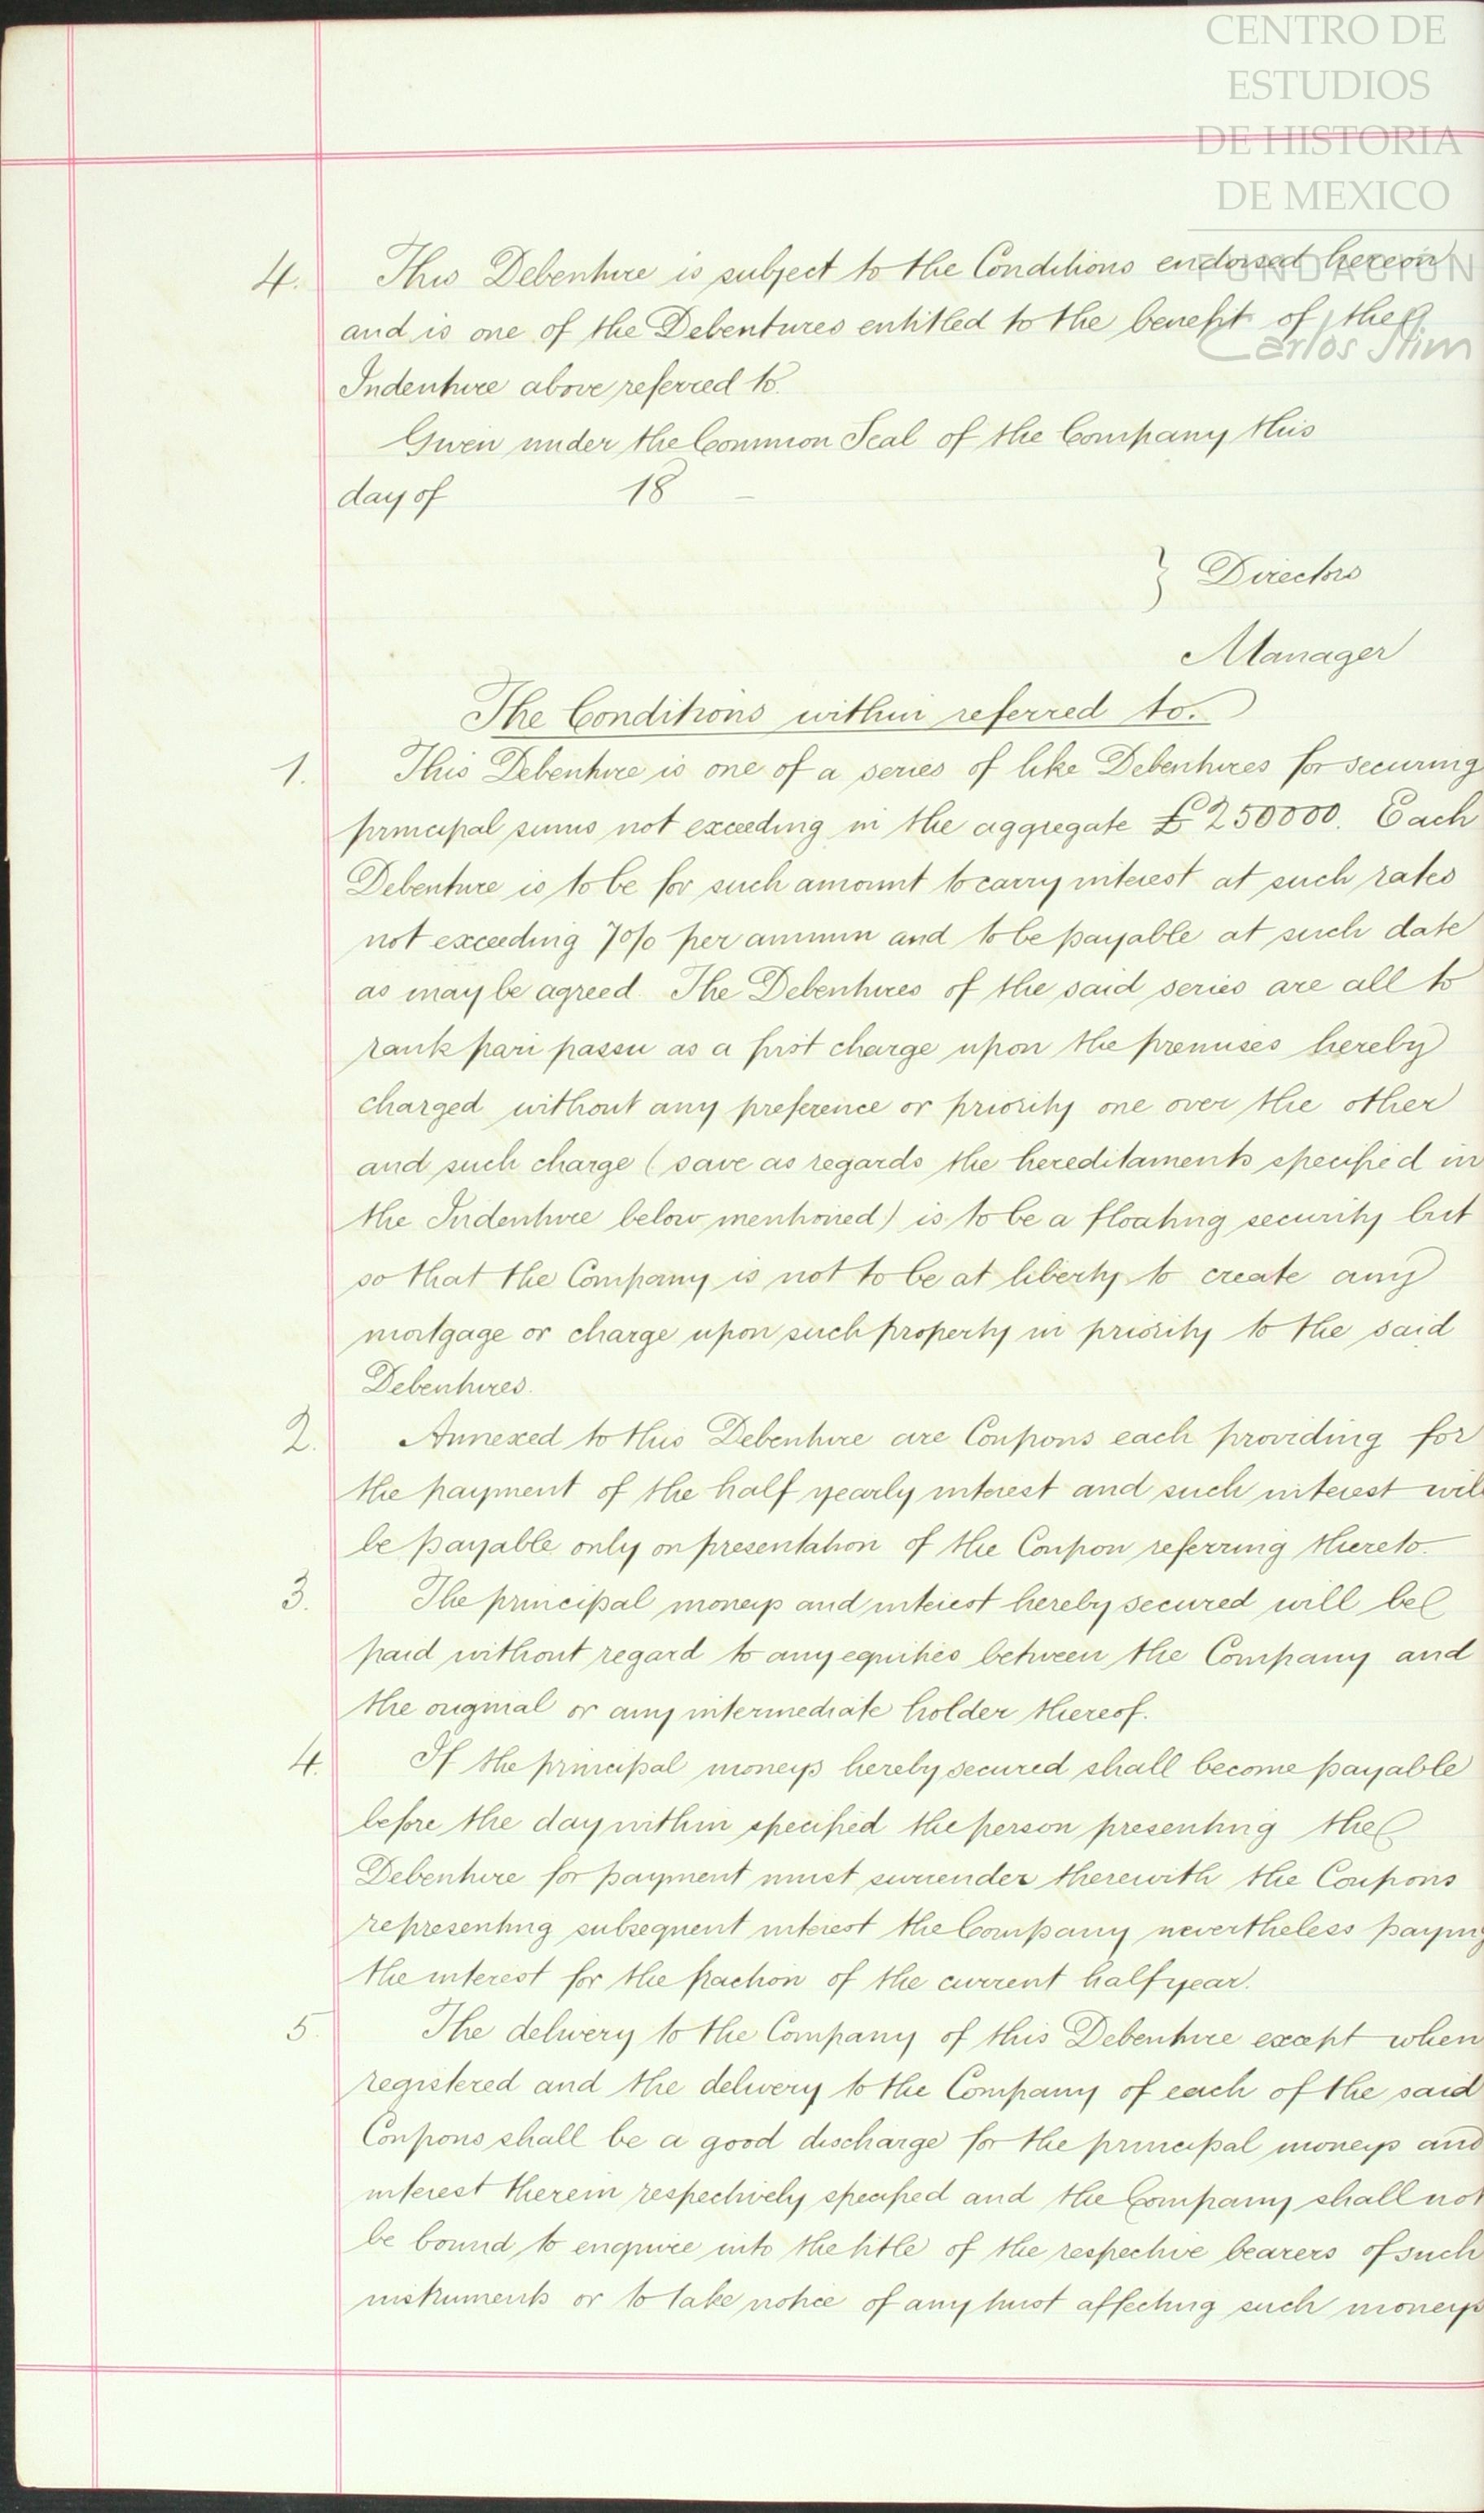 CENTRO DE
ESTUDIOS
DE HISTORIA
DE MEXICO
FUNDACIÓN
Carlos Slim
4. This Debenture is subject to the Conditions endorsed hereon
and is one of the Debentures entitled to the benefit of the
Indenture above referred to.
Given under the Common Seal of the Company this
day of 18
} Directors
Manager
The Conditions within referred to.
1. This Debenture is one of a series of like Debentures for securing
principal sums not exceeding in the aggregate £250000. Each
Debenture is to be for such amount to carry interest at such rates
not exceeding 7% per annum and to be payable at such date
as may be agreed. The Debentures of the said series are all to
rank pari passu as a first charge upon the premises hereby
charged without any preference or priority one over the other
and such charge (save as regards the hereditaments specified in
the Indenture below mentioned) is to be a floating security but
so that the Company is not to be at liberty to create any
mortgage or charge upon such property in priority to the said
Debentures.
2. Annexed to this Debenture are Coupons each providing for
the payment of the half yearly interest and such interest will
be payable only on presentation of the Coupon referring thereto.
3. The principal moneys and interest hereby secured will be
paid without regard to any equities between the Company and
the original or any intermediate holder thereof.
4. If the principal moneys hereby secured shall become payable
before the day within specified the person presenting the
Debenture for payment must surrender therewith the Coupons
representing subsequent interest the Company nevertheless paying
the interest for the fraction of the current half year.
5. The delivery to the Company of this Debenture except when
registered and the delivery to the Company of each of the said
Coupons shall be a good discharge for the principal moneys and
interest therein respectively specified and the Company shall not
be bound to enquire into the title of the respective bearers of such
instruments or to take notice of any trust affecting such moneys